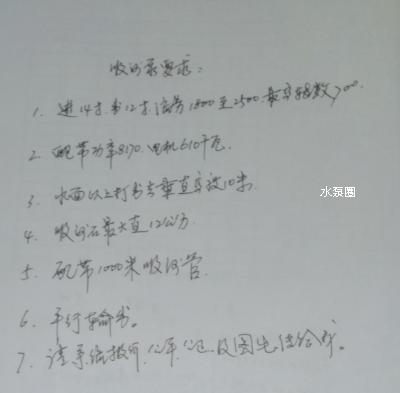 吸沙泵要求：
1. 进14寸，出12寸，流劳1800至2500，最高转数700
2. 配带功率8170，电机610千瓦。
3. 水面以上打出去垂直高度10米
4. 吸沙石最大直12公分
5. 配带1000米吸沙管
6. 平行输出。
7. 请予
水泵圈